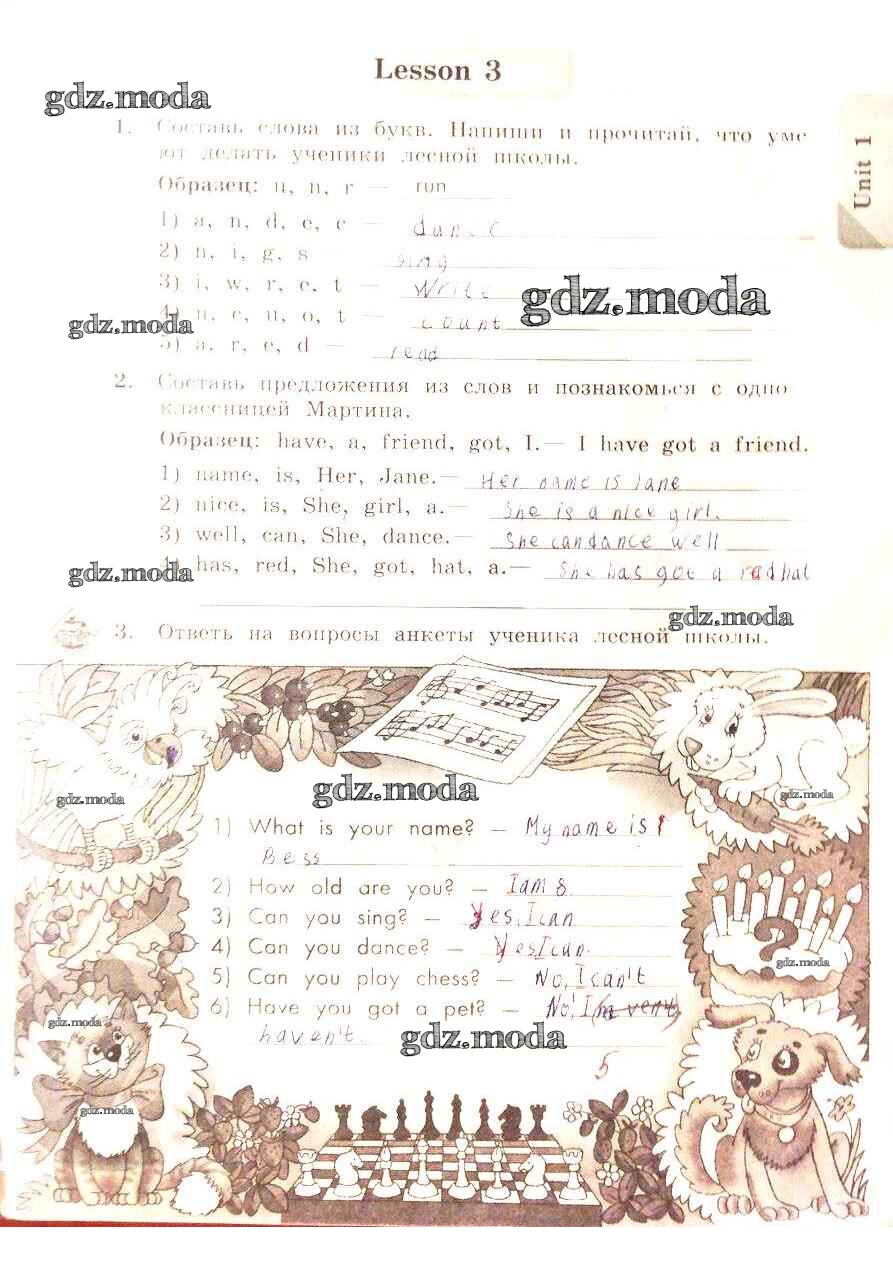 Lesson 3
gdz.moda
Unit 1
1. Составь слова из букв. Напиши и прочитай, что уме
ют делать ученики лесной школы.
Образец: u, n, r — run
1) a, n, d, e, c — dance
2) n, i, g, s — sing
3) i, w, r, e, t — write
gdz.moda
gdz.moda
4) n, c, u, o, t — count
5) a, r, e, d — read
2. Составь предложения из слов и познакомься с одно
классницей Мартина.
Образец: have, a, friend, got, I.— I have got a friend.
1) name, is, Her, Jane.— Her name is Jane
2) nice, is, She, girl, a.— She is a nice girl.
3) well, can, She, dance.— She can dance well
4) has, red, She, got, hat, a.— She has got a red hat
gdz.moda
gdz.moda
3. Ответь на вопросы анкеты ученика лесной школы.
gdz.moda
gdz.moda
1) What is your name? — My name is
Bess
2) How old are you? — I am 8
3) Can you sing? — Yes, I can
4) Can you dance? — Yes I can.
gdz.moda
5) Can you play chess? — No, I can't
6) Have you got a pet? — No, I
haven't.
gdz.moda
gdz.moda
5
gdz.moda
?